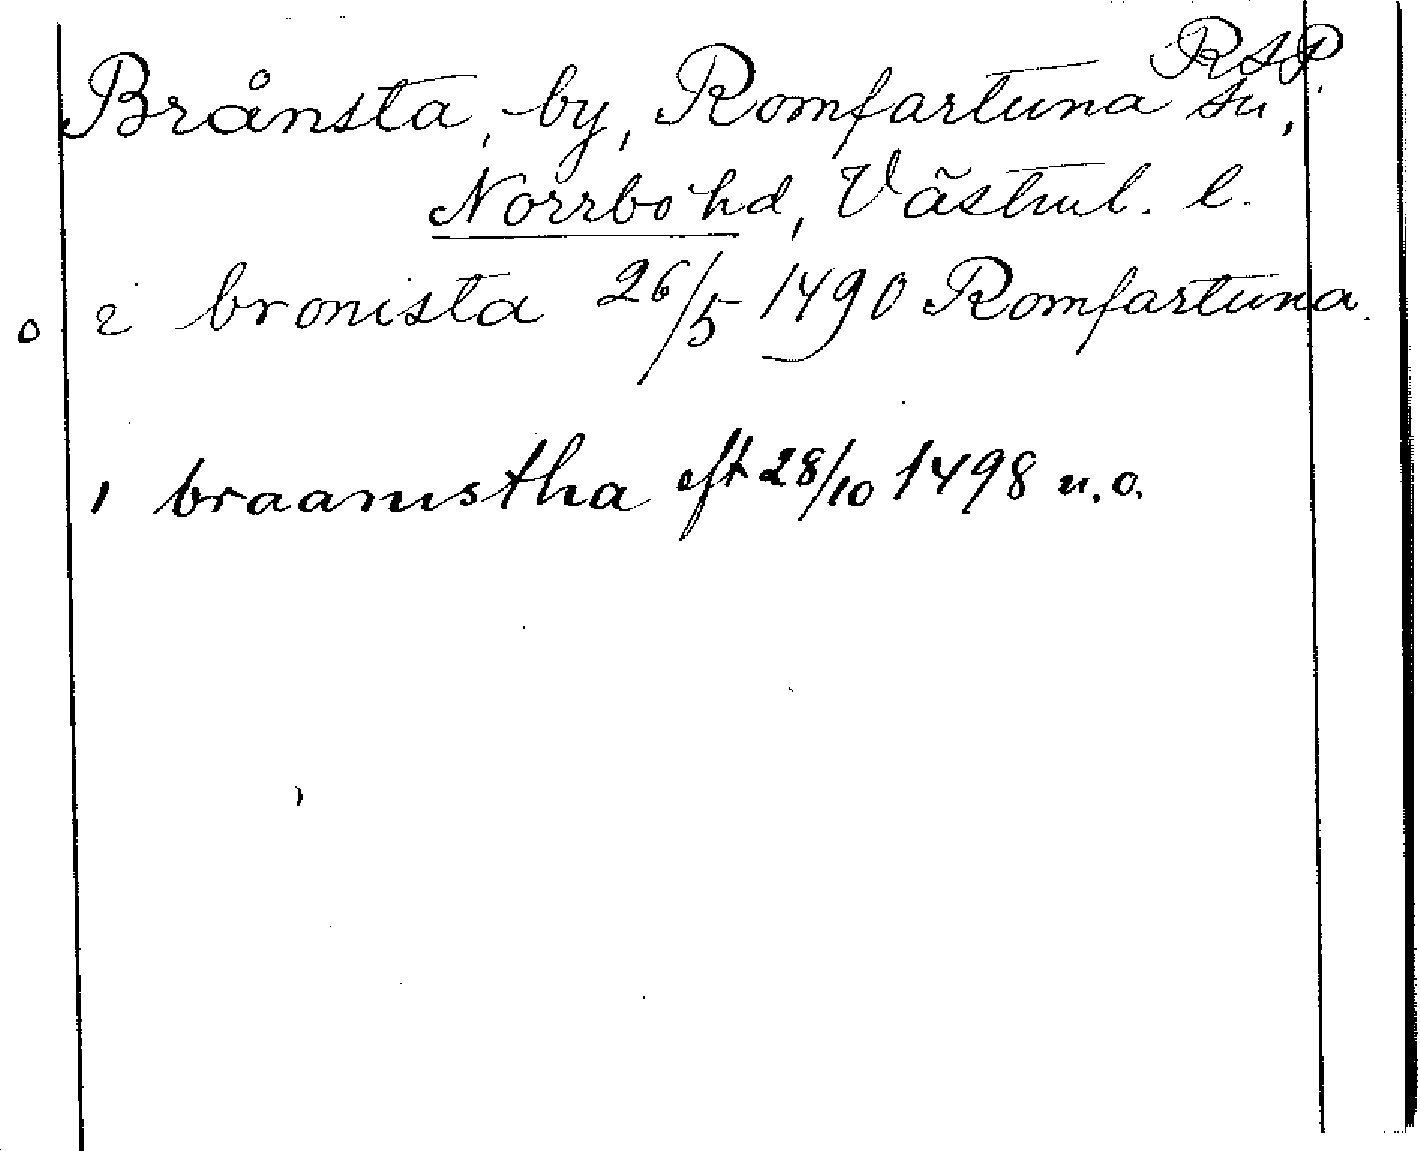 RAP.
Brånsta, by, Romfartuna sn,
Norrbo hd, Västml. l.
o i bronista 26/5 1490 Romfartuna.
i braanistha eft 28/10 1498 u. o.